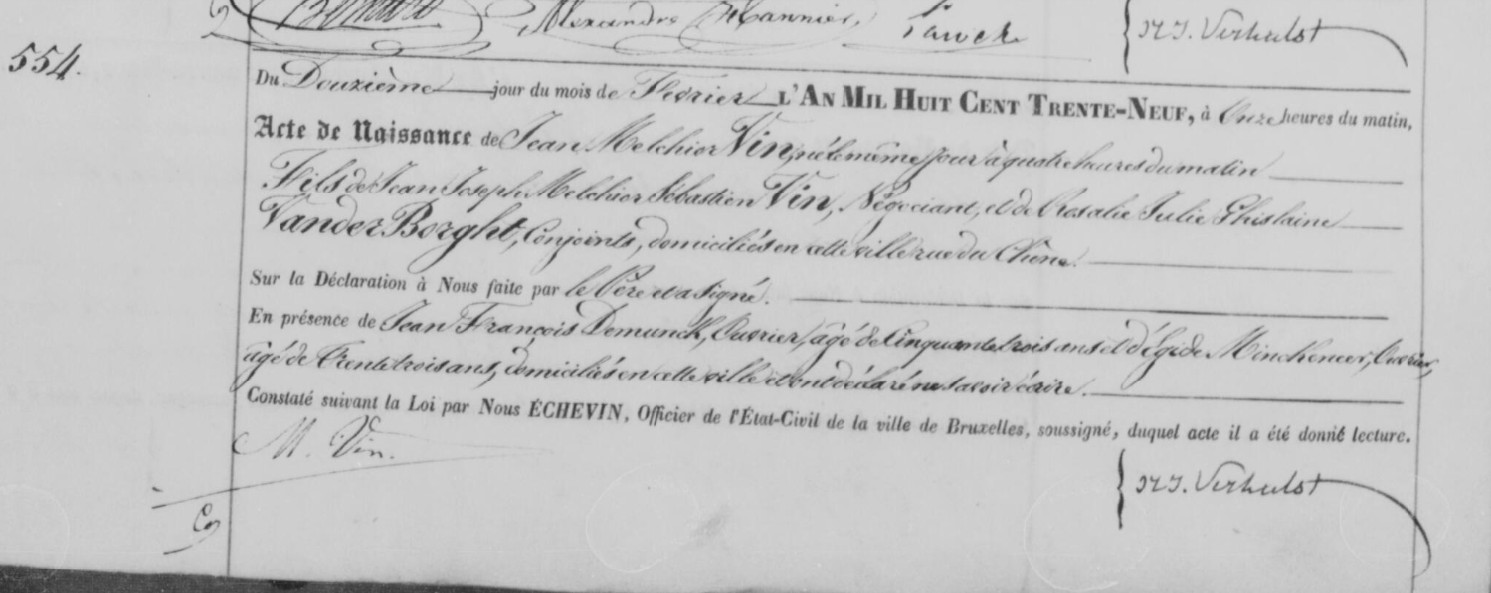 Alexandre
N. J. Verhulst
554.
Du Douzième jour du mois de Fevrier L'AN MIL HUIT CENT TRENTE-NEUF, à Onze heures du matin,
Acte de Naissance de Jean Melchior Vin, né le même jour à quatre heures du matin
Fils de Jean Joseph Melchior Sébastien Vin, Négociant, et de Rosalie Julie Ghislaine
Vander Borght, Conjoints, domiciliés en cette ville rue du Chêne.
Sur la Déclaration à Nous faite par le Père et a signé.
En présence de Jean François Demunck, Ouvrier, âgé de Cinquante trois ans et d'Égide Ouvrier,
âgé de Trente trois ans, domiciliés en cette ville et ont déclaré ne savoir écrire.
Constaté suivant la Loi par Nous ÉCHEVIN, Officier de l'État-Civil de la ville de Bruxelles, soussigné, duquel acte il a été donné lecture.
M. Vin.
N. J. Verhulst